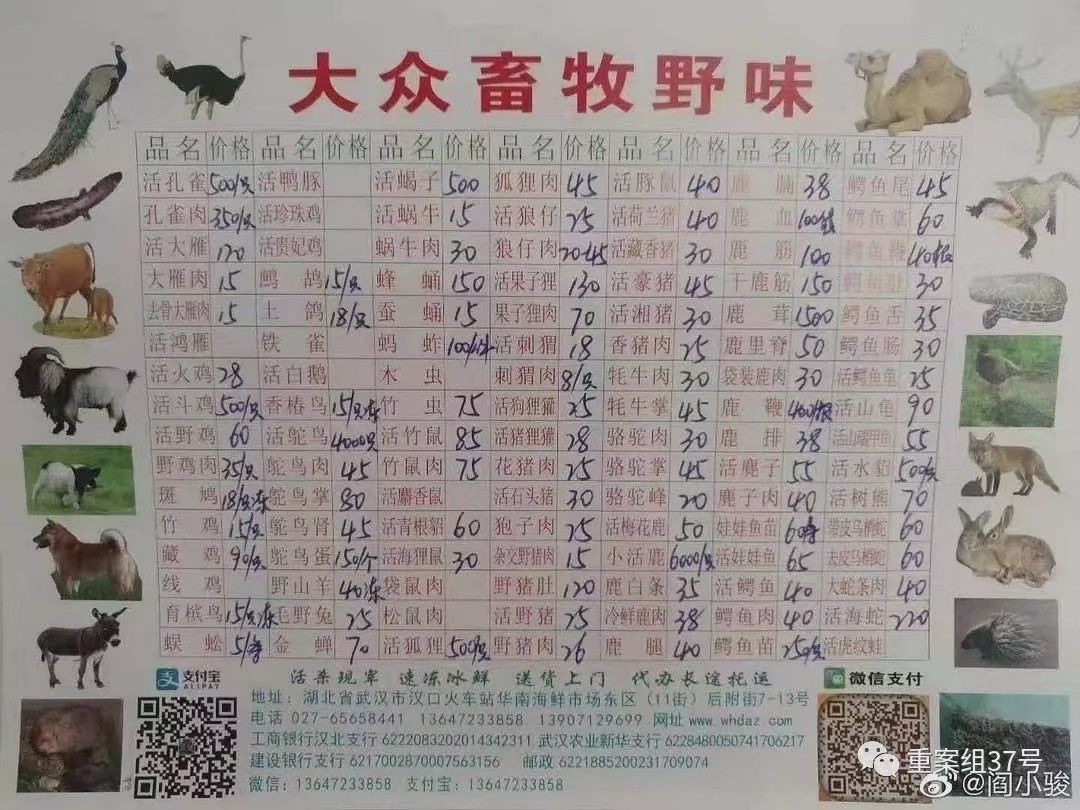 大众畜牧野味
品名 价格 品名 价格 品名 价格 品名 价格 品名 价格 品名 价格 品名 价格
活孔雀 500/只 活鸭豚 活蝎子 500 狐狸肉 45 活豚鼠 40 鹿腩 38 鳄鱼尾 45
孔雀肉 350/只 活珍珠鸡 活蜗牛 15 活狼仔 25 活荷兰猪 40 鹿血 鳄鱼掌 60
活大雁 120 活贵妃鸡 蜗牛肉 30 狼仔肉 活藏香猪 30 鹿筋 100 鳄鱼鞭
大雁肉 15 鹧鸪 15/只 蜂蛹 150 活果子狸 130 活豪猪 45 干鹿筋 150 鳄鱼肚 30
去骨大雁肉 15 土鸽 18/只 蚕蛹 15 果子狸肉 70 活湘猪 30 鹿茸 1500 鳄鱼舌 35
活鸿雁 铁雀 蚂蚱 活刺猬 18 香猪肉 25 鹿里脊 50 鳄鱼肠 30
活火鸡 28 活白鹅 木虫 刺猬肉 8/只 牦牛肉 30 袋装鹿肉 30 活鳄鱼龟 25
活斗鸡 500/只 香椿鸟 15/只冻 竹虫 75 活狗狸獾 25 牦牛掌 45 鹿鞭 400/根 活山龟 90
活野鸡 60 活鸵鸟 4000只 活竹鼠 85 活猪狸獾 28 骆驼肉 30 鹿排 38 活山瑞甲鱼 55
野鸡肉 35/只 鸵鸟肉 45 竹鼠肉 75 花猪肉 25 骆驼掌 45 活麂子 55 活水貂 500/只
斑鸠 18/只冻 鸵鸟掌 80 活麝香鼠 活石头猪 30 骆驼峰 20 麂子肉 40 活树熊 70
竹鸡 15/只 鸵鸟肾 45 活青根貂 60 狍子肉 25 活梅花鹿 50 娃娃鱼苗 带皮乌梢蛇 60
藏鸡 90/只 鸵鸟蛋 150/个 活海狸鼠 30 杂交野猪肉 15 小活鹿 6000/只 活娃娃鱼 65 去皮乌梢蛇 60
线鸡 野山羊 40冻 袋鼠肉 野猪肚 120 鹿白条 35 活鳄鱼 40 大蛇条肉 40
育槟鸟 15/只冻 毛野兔 25 松鼠肉 活野猪 25 冷鲜鹿肉 38 鳄鱼肉 40 活海蛇 220
蜈蚣 金蝉 70 活狐狸 500/只 野猪肉 26 鹿腿 40 鳄鱼苗 250/只 活虎纹蛙
支付宝 ALIPAY 活杀现宰 速冻冰鲜 送货上门 代办长途托运 微信支付
地址：湖北省武汉市汉口火车站华南海鲜市场东区（11街）后附街7-13号
电话 027-65658441 13647233858 13907129699 网址 www.whdaz.com
工商银行汉北支行 6222083202014342311 武汉农业新华支行 6228480050741706217
建设银行支行 6217002870007563156 邮政 6221885200231709074
微信：13647233858 支付宝：13647233858
重案组37号
@阎小骏